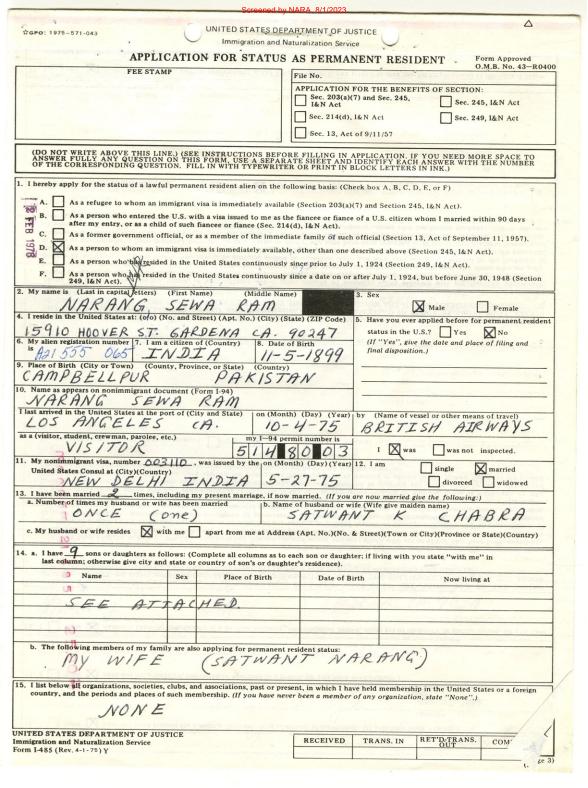 Screened by NARA, 8/1/2023
☆GPO: 1975-571-043
UNITED STATES DEPARTMENT OF JUSTICE
Immigration and Naturalization Service
APPLICATION FOR STATUS AS PERMANENT RESIDENT
Form Approved
O.M.B. No. 43-R0400
FEE STAMP
File No.
APPLICATION FOR THE BENEFITS OF SECTION:
Sec. 203(a)(7) and Sec. 245, I&N Act
Sec. 245, I&N Act
Sec. 214(d), I&N Act
Sec. 249, I&N Act
Sec. 13, Act of 9/11/57
(DO NOT WRITE ABOVE THIS LINE.) (SEE INSTRUCTIONS BEFORE FILLING IN APPLICATION. IF YOU NEED MORE SPACE TO
ANSWER FULLY ANY QUESTION ON THIS FORM, USE A SEPARATE SHEET AND IDENTIFY EACH ANSWER WITH THE NUMBER
OF THE CORRESPONDING QUESTION. FILL IN WITH TYPEWRITER OR PRINT IN BLOCK LETTERS IN INK.)
1. I hereby apply for the status of a lawful permanent resident alien on the following basis: (Check box A, B, C, D, E, or F)
A. As a refugee to whom an immigrant visa is immediately available (Section 203(a)(7) and Section 245, I&N Act).
B. As a person who entered the U.S. with a visa issued to me as the fiancee or fiance of a U.S. citizen whom I married within 90 days
after my entry, or as a child of such fiancee or fiance (Sec. 214(d), I&N Act).
C. As a former government official, or as a member of the immediate family of such official (Section 13, Act of September 11, 1957).
D. X As a person to whom an immigrant visa is immediately available, other than one described above (Section 245, I&N Act).
E. As a person who has resided in the United States continuously since prior to July 1, 1924 (Section 249, I&N Act).
F. As a person who has resided in the United States continuously since a date on or after July 1, 1924, but before June 30, 1948 (Section
249, I&N Act).
FEB 1976
2. My name is (Last in capital letters) (First Name) (Middle Name)
NARANG SEWA RAM
3. Sex
X Male Female
4. I reside in the United States at: (c/o) (No. and Street) (Apt. No.) (City) (State) (ZIP Code)
15910 HOOVER ST. GARDENA CA. 90247
5. Have you ever applied before for permanent resident
status in the U.S.? Yes X No
(If "Yes", give the date and place of filing and
final disposition.)
6. My alien registration number is
A21 555 065
7. I am a citizen of (Country)
INDIA
8. Date of Birth
11-5-1899
9. Place of Birth (City or Town) (County, Province, or State) (Country)
CAMPBELLPUR PAKISTAN
10. Name as appears on nonimmigrant document (Form I-94)
NARANG SEWA RAM
I last arrived in the United States at the port of (City and State)
LOS ANGELES CA.
on (Month) (Day) (Year)
10-4-75
by (Name of vessel or other means of travel)
BRITISH AIRWAYS
as a (visitor, student, crewman, parolee, etc.)
VISITOR
my I-94 permit number is
514 80 03
I X was was not inspected.
11. My nonimmigrant visa, number 003110, was issued by the
United States Consul at (City)(Country)
NEW DELHI INDIA
on (Month) (Day) (Year)
5-27-75
12. I am
single X married
divorced widowed
13. I have been married 2 times, including my present marriage, if now married. (If you are now married give the following:)
a. Number of times my husband or wife has been married
ONCE (one)
b. Name of husband or wife (Wife give maiden name)
SATWANT K CHABRA
c. My husband or wife resides X with me apart from me at Address (Apt. No.)(No. & Street)(Town or City)(Province or State)(Country)
14. a. I have 9 sons or daughters as follows: (Complete all columns as to each son or daughter; if living with you state "with me" in
last column; otherwise give city and state or country of son's or daughter's residence).
Name Sex Place of Birth Date of Birth Now living at
SEE ATTACHED.
b. The following members of my family are also applying for permanent resident status:
MY WIFE (SATWANT NARANG)
15. I list below all organizations, societies, clubs, and associations, past or present, in which I have held membership in the United States or a foreign
country, and the periods and places of such membership. (If you have never been a member of any organization, state "None".)
NONE
UNITED STATES DEPARTMENT OF JUSTICE
Immigration and Naturalization Service
Form I-485 (Rev. 4-1-75) Y
RECEIVED TRANS. IN RET'D-TRANS. OUT